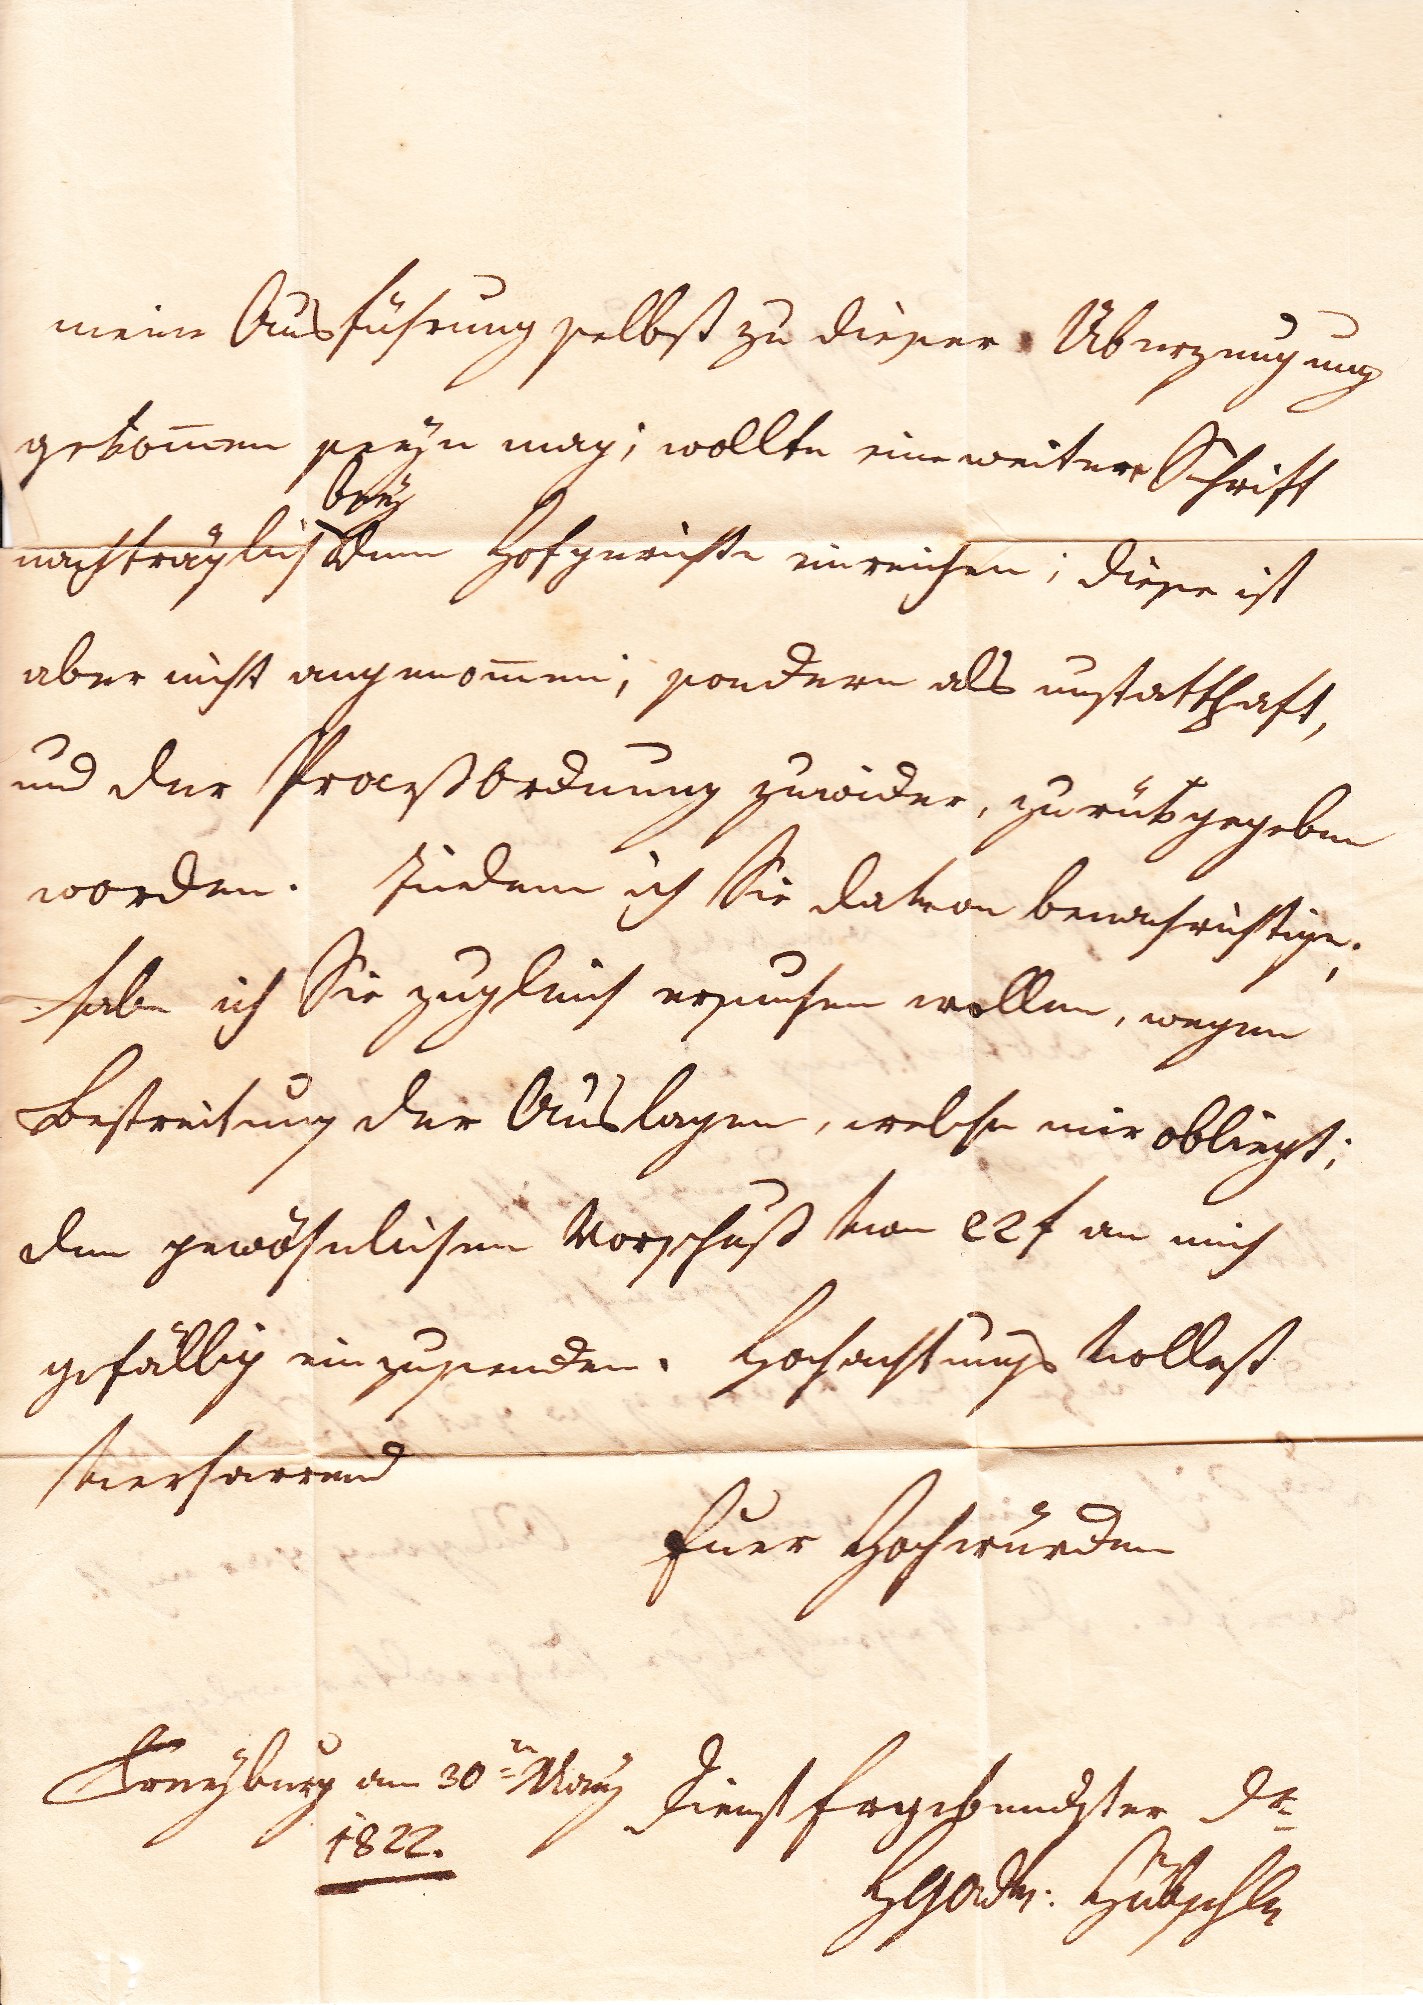 meine Ausführung selbst zu dieser Überzeugung
gekom̅en seÿn mag; wollte eine weitere Schrift
nachträglich beÿ dem Hofgerichte einreichen; diese ist
aber nicht angenom̅en, sondern als unstatthaft,
und der Proceßordnung zuwider, zurükgegeben
worden. Indem ich Sie davon benachrichtige,
habe ich Sie zugleich ersuchen wollen, wegen
Bestreitung der Auslagen, welche mir obliegt;
den gewöhnlichen Vorschuß von 22 f an mich
gefällig einzusenden. Hochachtungsvollest
verharrend
Euer Hochwürden
Freÿburg am 30n Maÿ Dienst Ergebendster Dr
1822.
HGAdv: